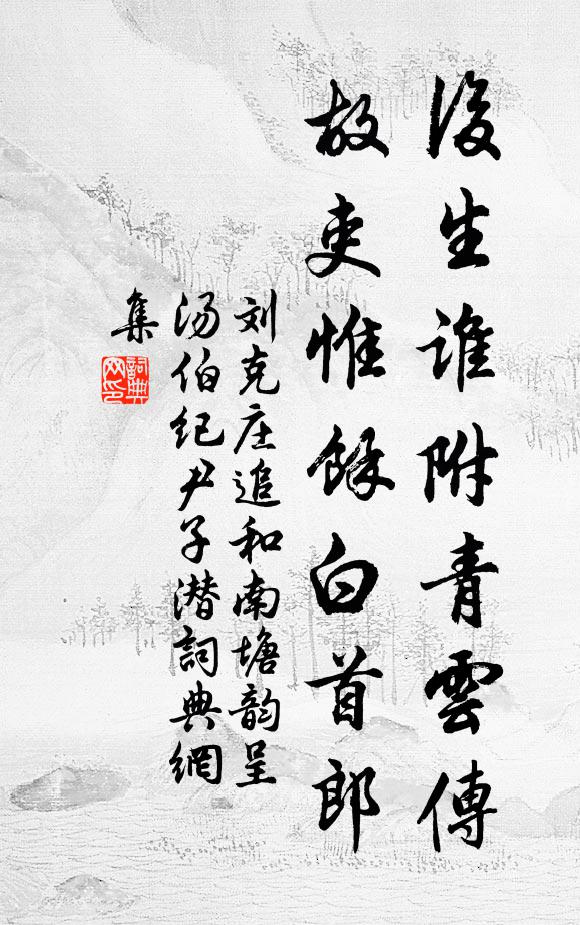 後生誰附青雲傳
故吏惟餘白首郎
刘克庄追和南塘韵呈
汤伯纪尹子潜詞典網
集
詞典
网印